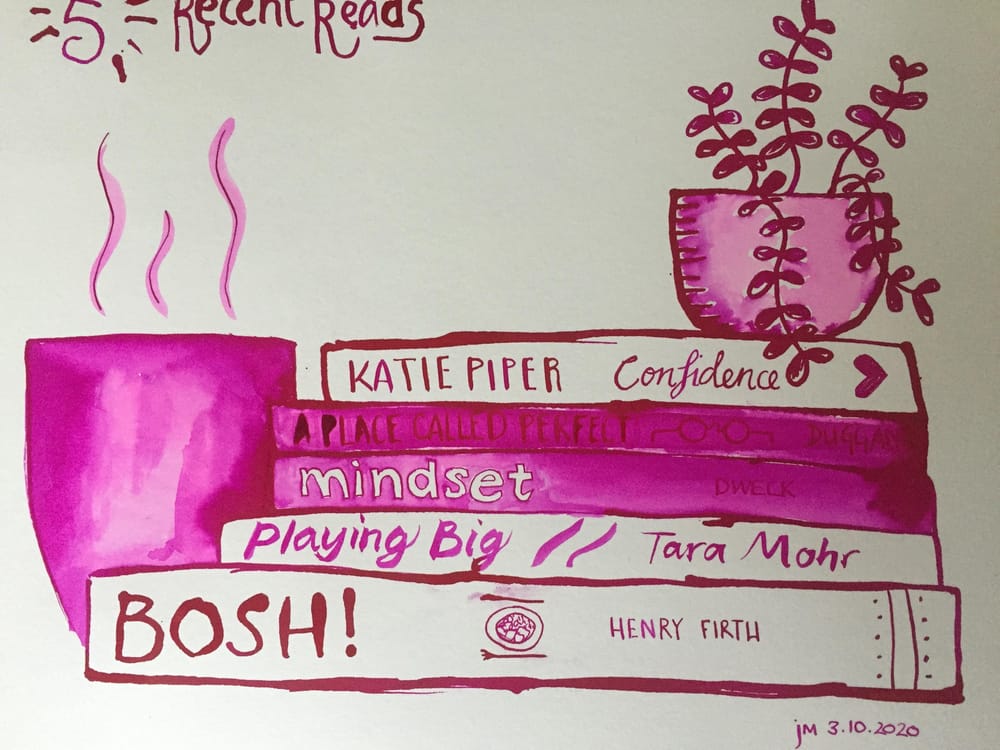 5 Recent Reads
KATIE PIPER Confidence
A PLACE CALLED PERFECT DUGGAN
mindset DWECK
Playing Big // Tara Mohr
BOSH! HENRY FIRTH
jM 3.10.2020